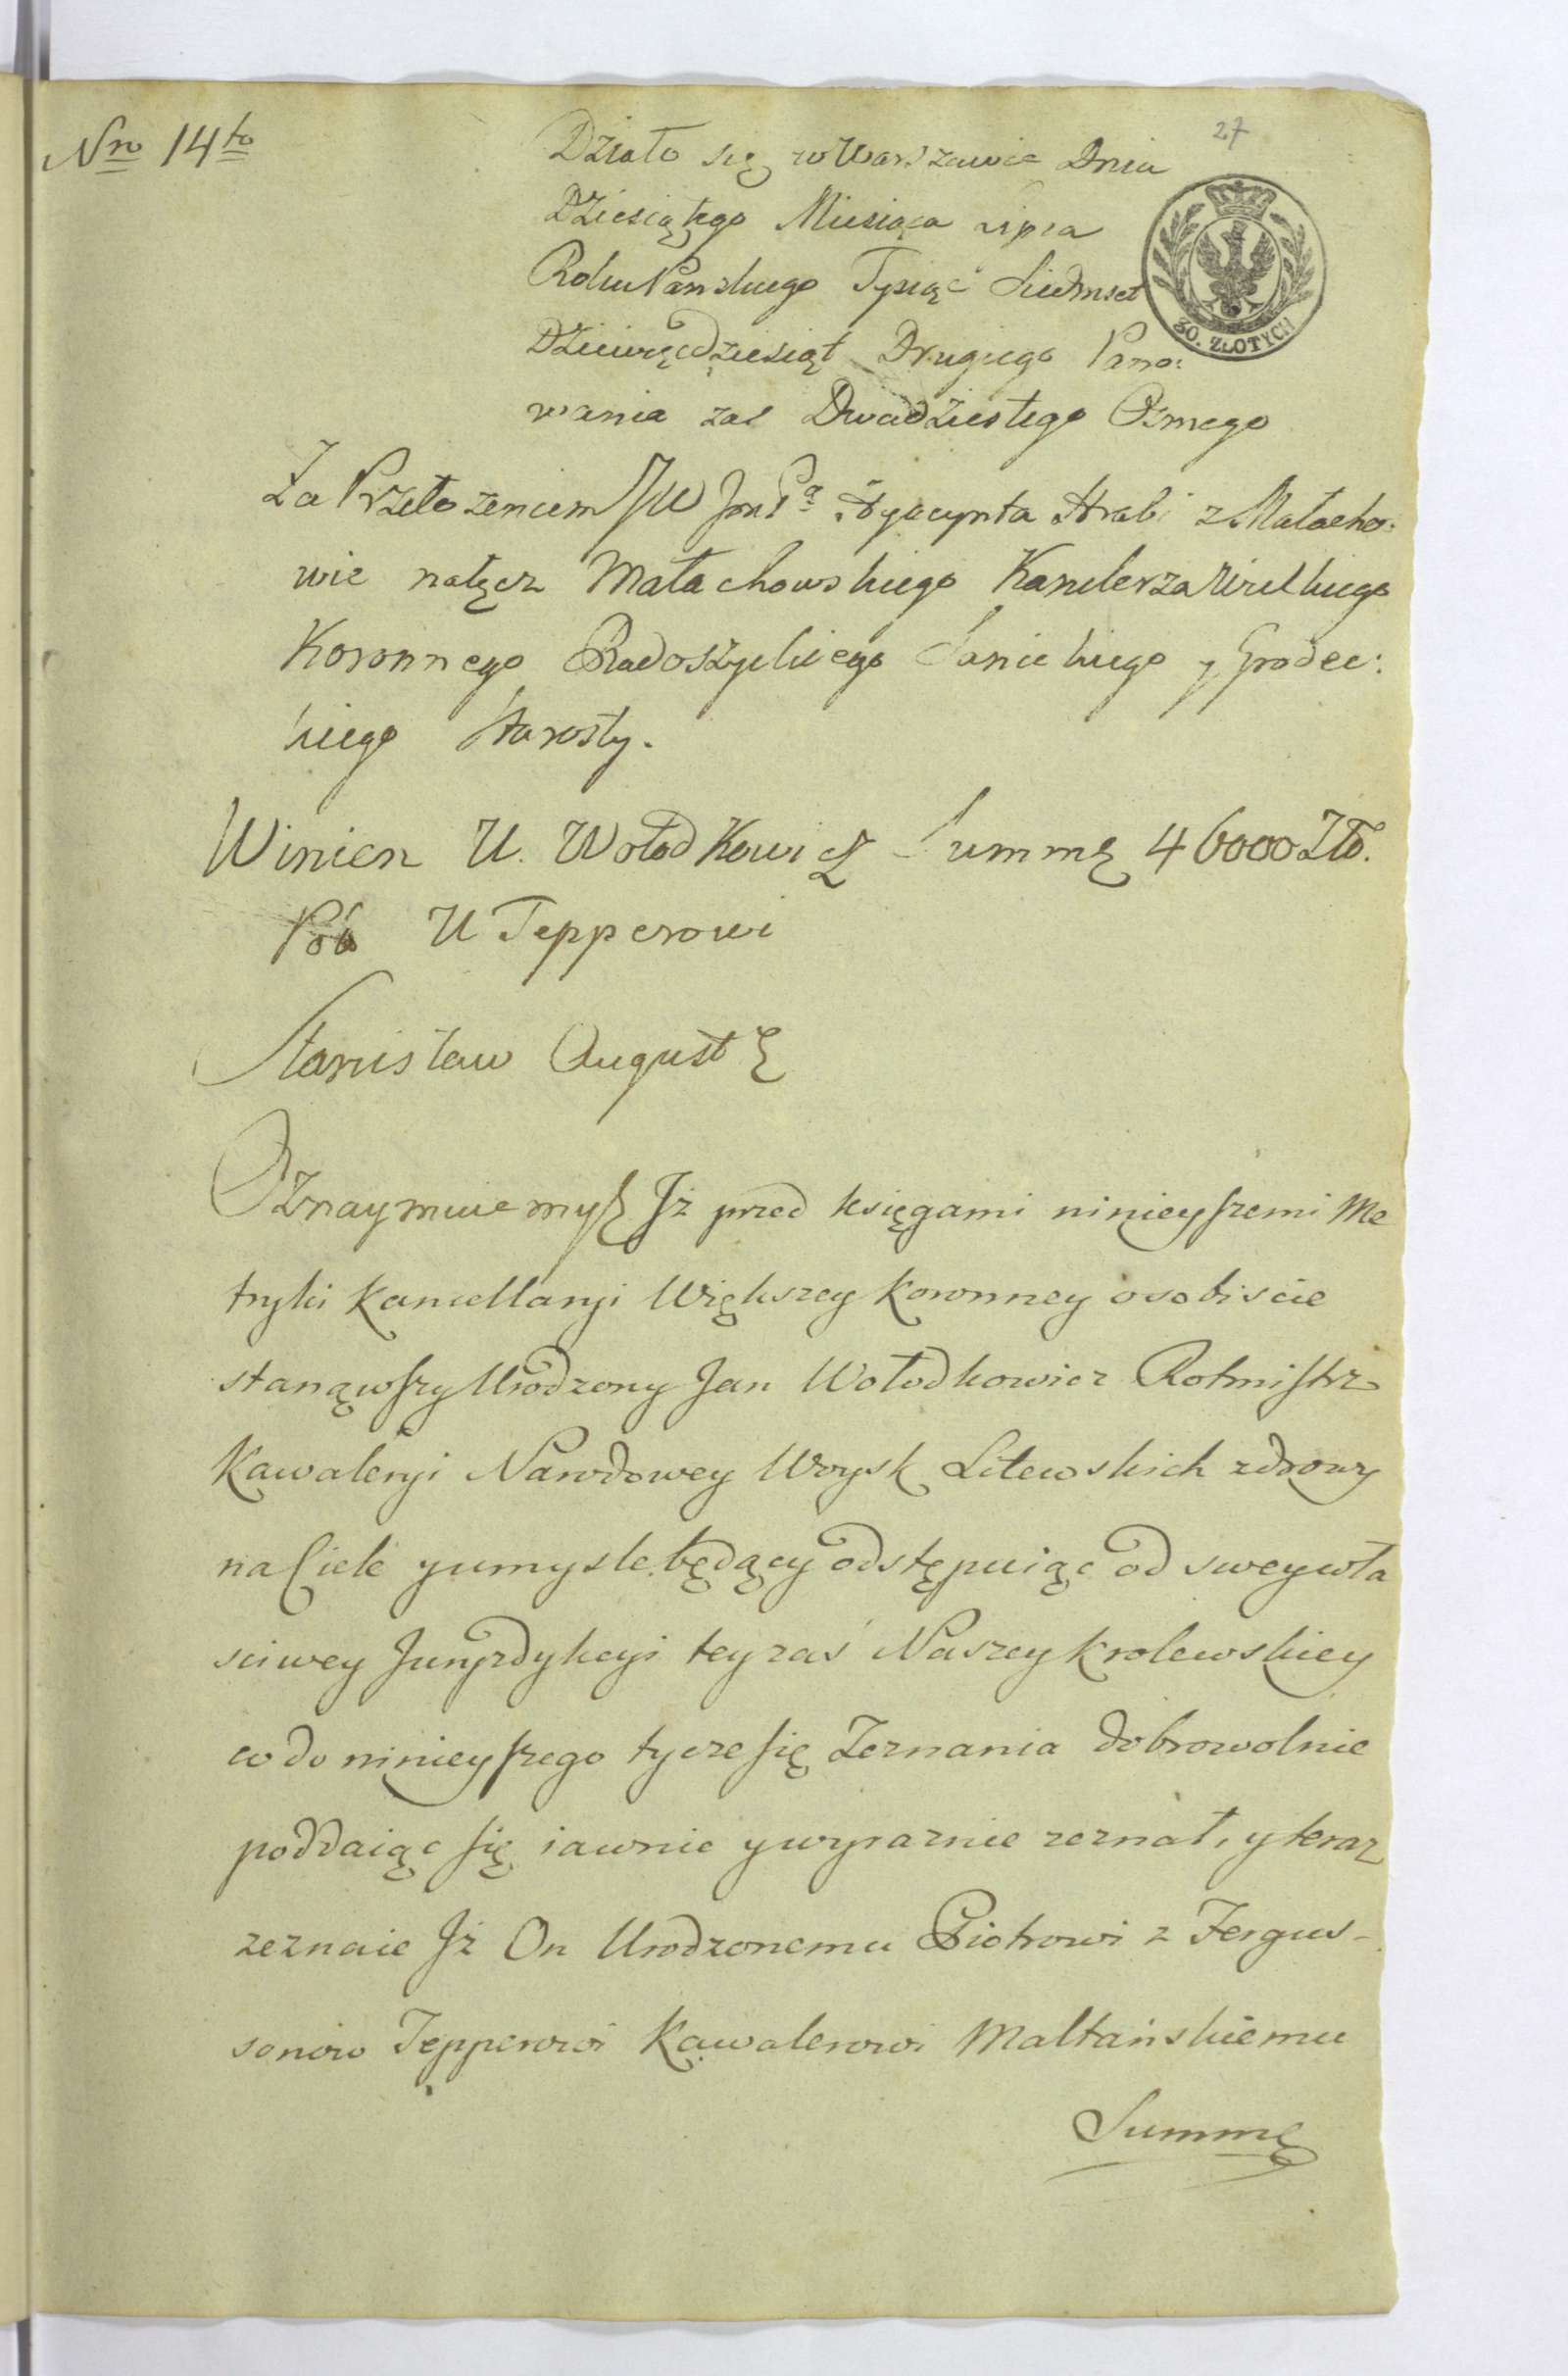 27
Nro 14to
Działo się w Warszawie Dnia
Dziesiątego Miesiąca Lipca
Roku Pańskiego Tysiąc Siedmset
Dziewięćdziesiąt Drugiego Pano:
wania zaś Dwudziestego Osmego
30. ZŁOTYCH
Za Przełozeniem JW JmPa Hyacynta Hrabi z Małacho:
wic nałęcz Małachowskiego Kanclerza Wielkiego
Koronnego Radoszyckiego Sanickiego y Grodec:
kiego Starosty.
Winien U. Wołodkowicz Summę 46000 Zło.
Pol U Tepperowi
Stanisław August
Oznaymuiemy Jż przed księgami ninieyszemi Me
tryki Kancellaryi Większey Koronney osobiscie
stanąwszy Urodzony Jan Wołodkowicz Rotmistrz
Kawaleryi Narodowey Woysk Litewskich zdrowy
na Ciele y umysle będący odstępuiąc od swey wła
sciwey Juryzdykcyi tey zaś Naszey krolewskiey
co do ninieyszego tycze się Zeznania dobrowolnie
poddaiąc się iawnie y wyraznie zeznał, y teraz
zeznaie Jż On Urodzonemu Piotrowi z Fergus-
sonow Tepperowi Kawalerowi Maltańskiemu
Summę